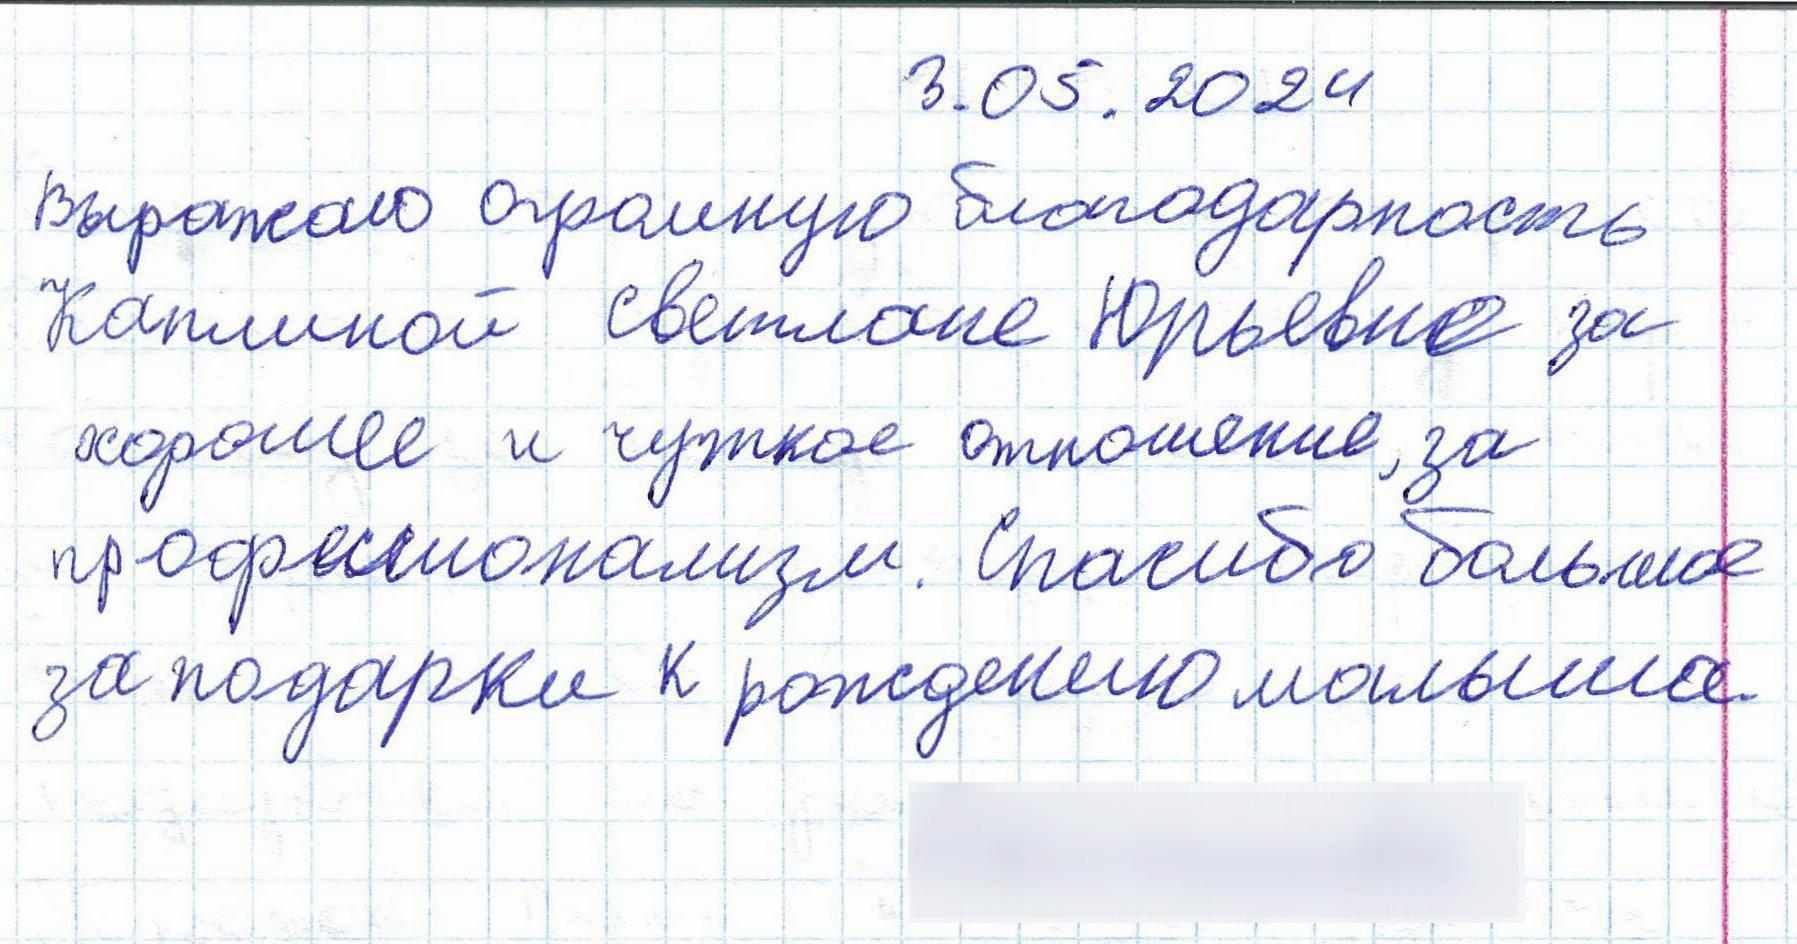 3.05.2024
Выражаю огромную благодарность
Каплиной Светлане Юрьевне за
хорошее и чуткое отношение, за
профессионализм. Спасибо большое
за подарки к рождению малыша.